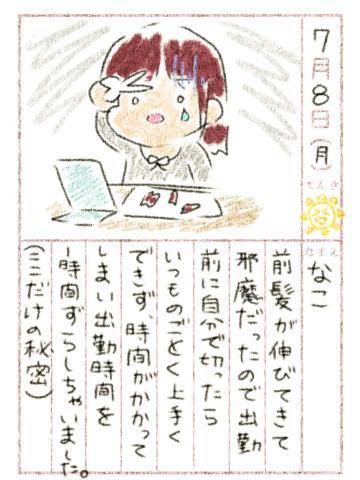 7月8日(月)
てんき
なまえ
なこ
前髪が伸びてきて
邪魔だったので出勤
前に自分で切ったら
いつものごとく上手く
できず、時間がかかって
しまい出勤時間を
1時間ずらしちゃいました。
(ここだけの秘密)